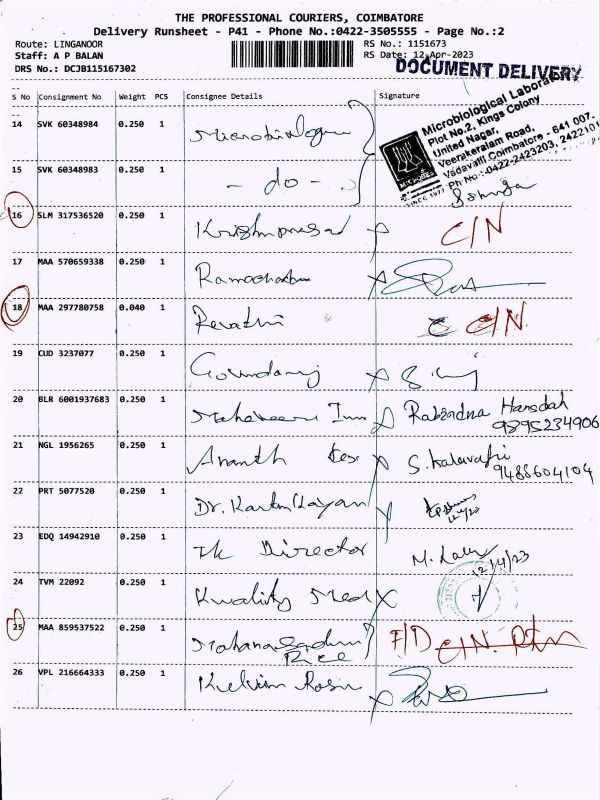 THE PROFESSIONAL COURIERS, COIMBATORE
Delivery Runsheet - P41 - Phone No.:0422-3505555 - Page No.:2
Route: LINGANOOR
Staff: A P BALAN
DRS No.: DCJB115167302
RS No.: 1151673
RS Date: 12-Apr-2023
DOCUMENT DELIVERY
S No Consignment No Weight PCS Consignee Details Signature
Microbiological Laboratory
Plot No.2, Kings Colony
United Nagar,
Veerakeralam Road,
Vadavalli Coimbatore - 641 007.
Ph No :-0422-2423203, 2422101
SINCE 1977
14 SVK 60348984 0.250 1
15 SVK 60348983 0.250 1 - do -
16 SLM 317536520 0.250 1 Krishnprasad C/N
17 MAA 570659338 0.250 1
18 MAA 297780758 0.040 1 Revathi C/N
19 CUD 3237077 0.250 1 Govindaraj
20 BLR 6001937683 0.250 1 Mahaveer Inn Rabindna Hansdah
9895234906
21 NGL 1956265 0.250 1 Ananth S. Kalavathi
9488604104
22 PRT 5077520 0.250 1 Dr. Karthikayan
23 EDQ 14942910 0.250 1 The Director
12/4/23
24 TVM 22092 0.250 1 Kwality Med
25 MAA 859537522 0.250 1 F/D C/N.
Rice
26 VPL 216664333 0.250 1 Kelvin